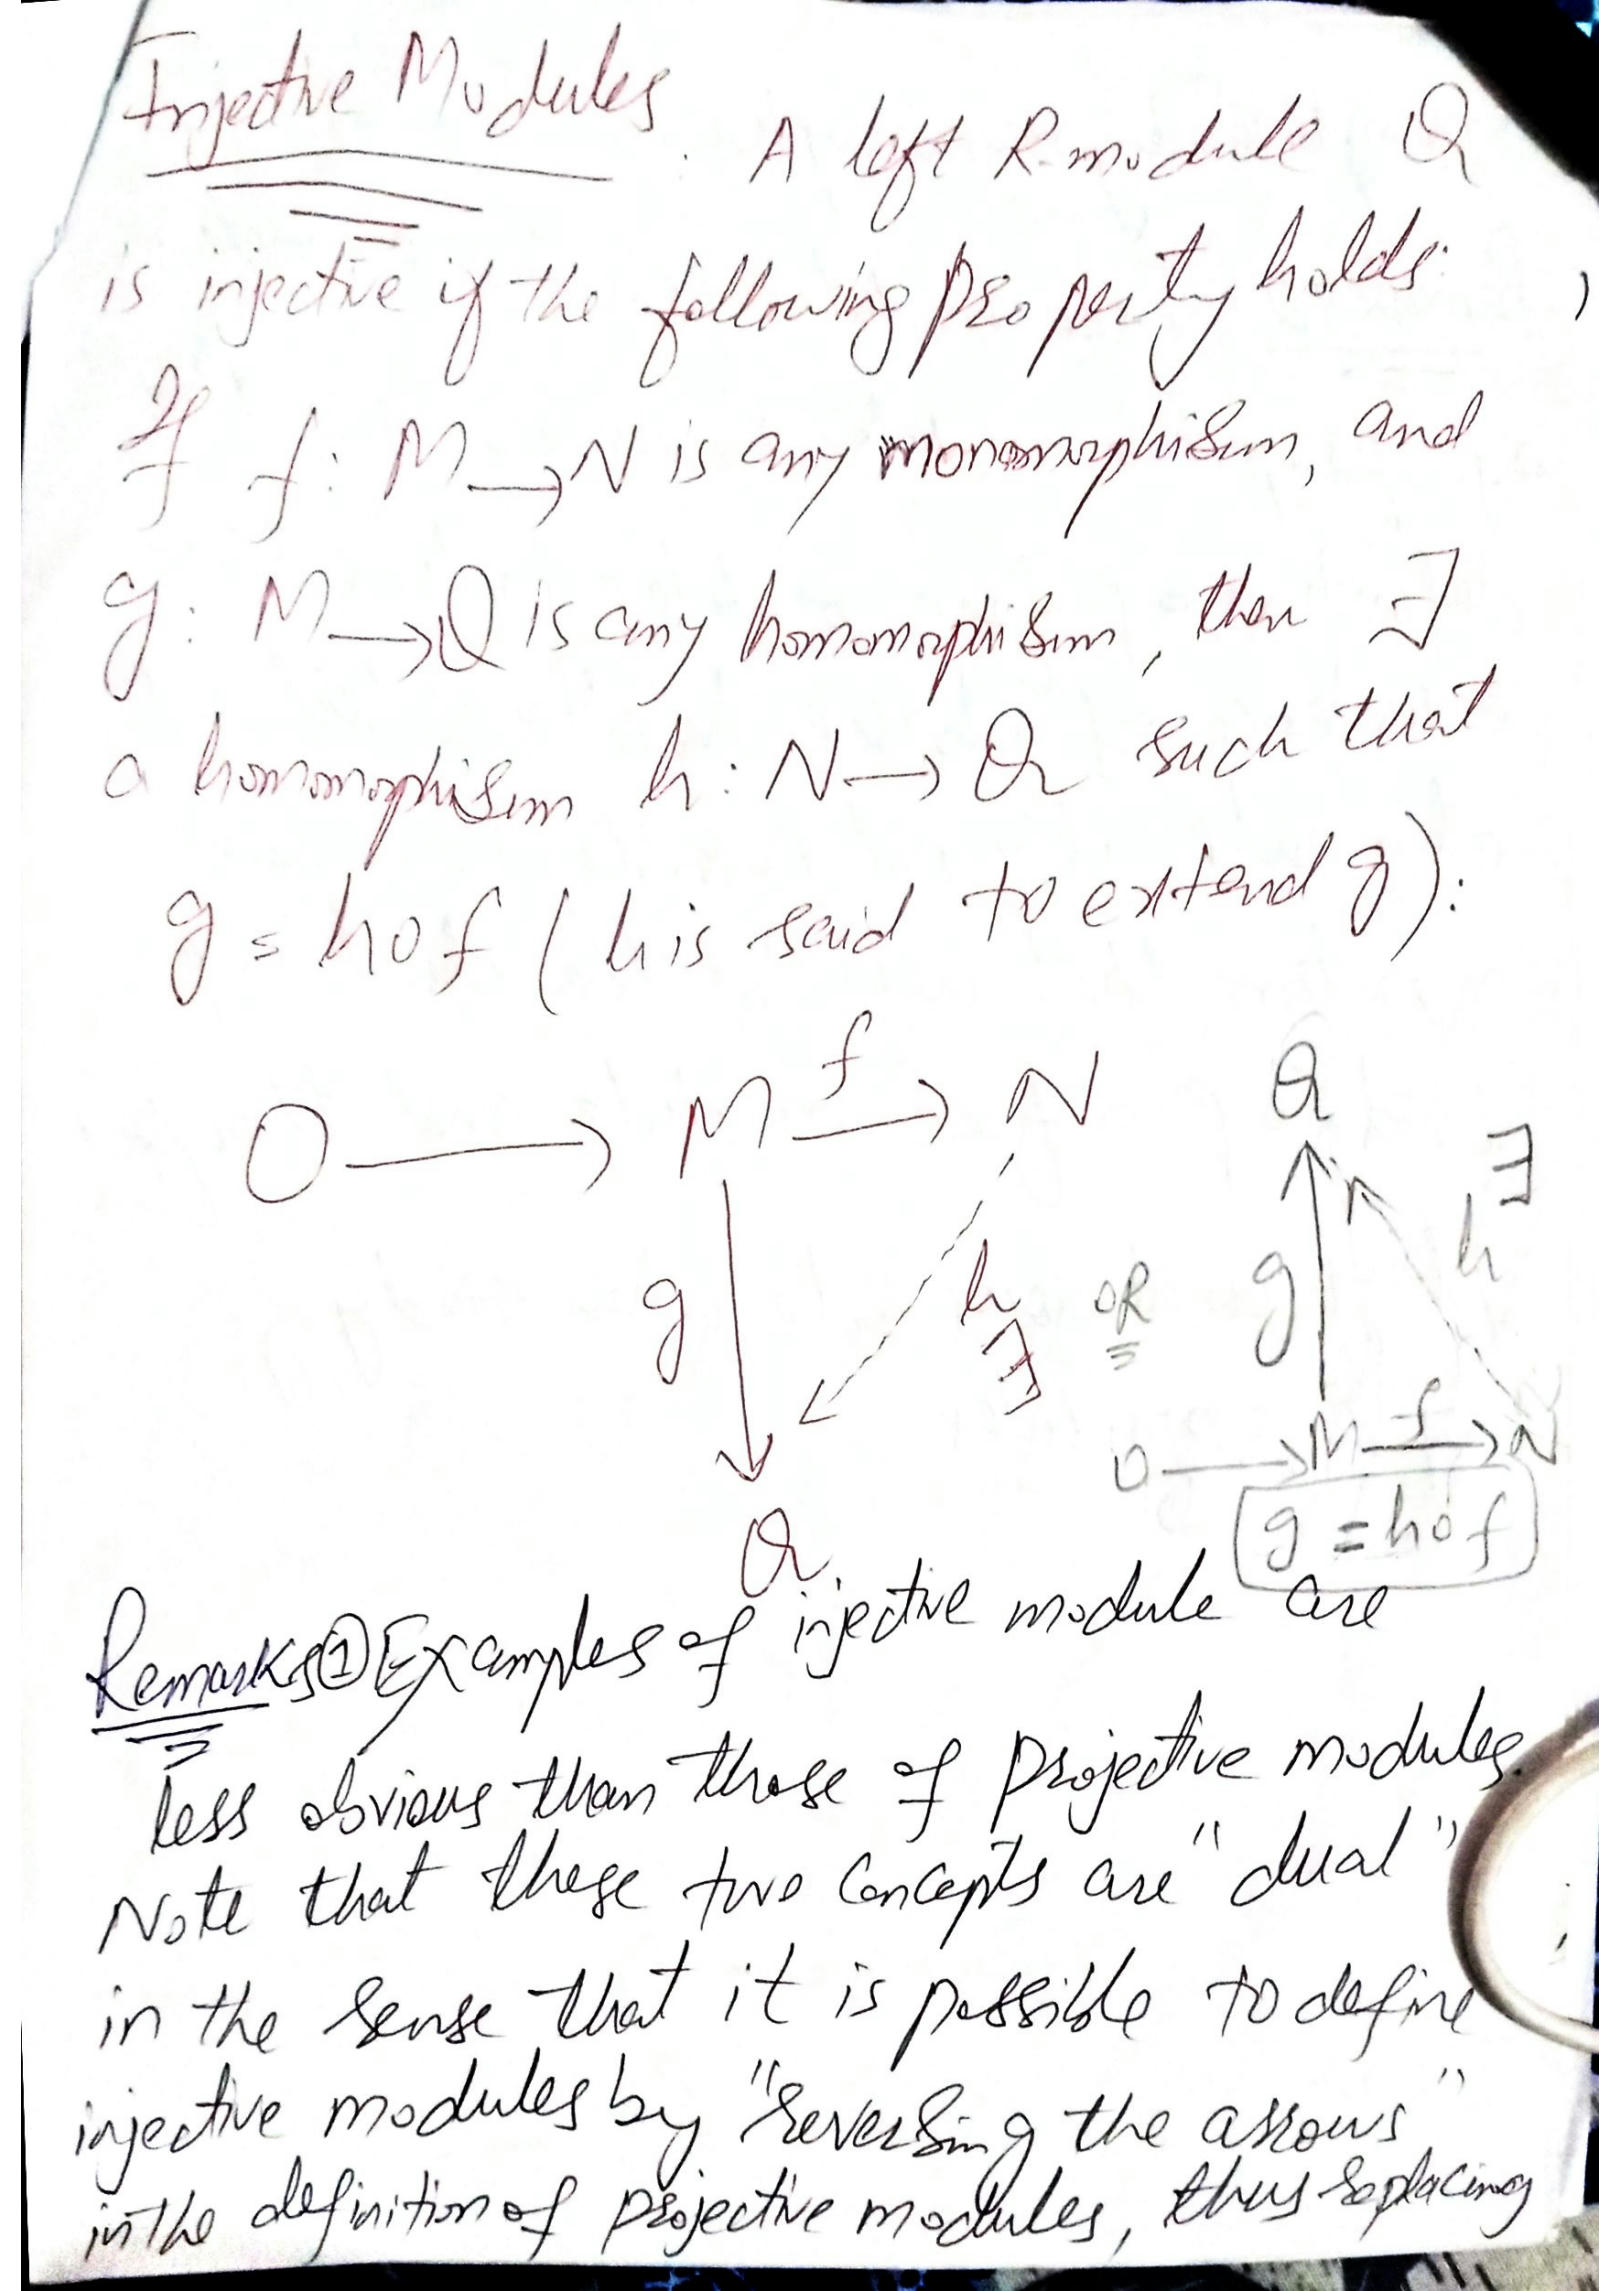 Injective Modules. A left R-module Q
is injective if the following property holds:
If f: M → N is any monomorphism, and
g: M → Q is any homomorphism, then ∃
a homomorphism h: N → Q such that
g = h∘f (h is said to extend g):
0 → M f → N
g h ∃
Q
OR
Q
g h ∃
0 → M f → N
g = h∘f
Remarks ① Examples of injective module are
less obvious than those of projective modules.
Note that these two concepts are "dual"
in the sense that it is possible to define
injective modules by "reversing the arrows"
in the definition of projective modules, thus replacing